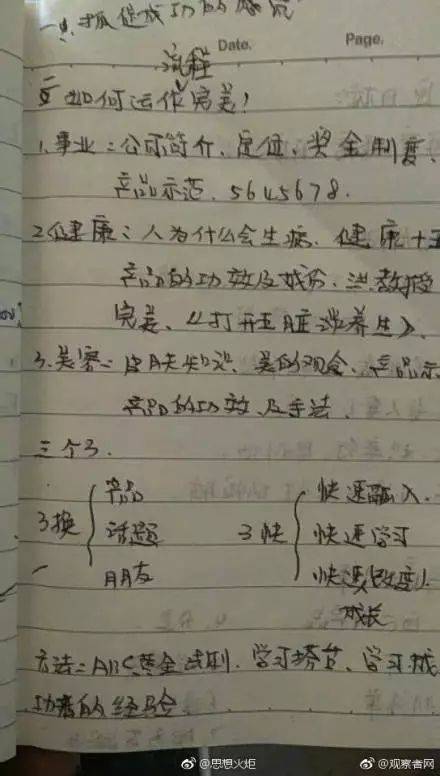 抓住成功的
Date. Page.
流程
五如何运作完美!
1.事业:公司简介、定位、奖金制度、
产品示范、5645678.
2.健康:人为什么会生病、健康十五
产品的功效及成份、洪教授
完美、《打开五脏谈养生》、
3.美容:皮肤知识、美的观念、产品示
产品的功效及手法、
三个3.
3换 产品 3快 快速融入.
话题 快速学习
朋友 快速改变、
成长
方法:ABC黄金法则、学习榜样、学习成
功者的经验
@思想火炬 @观察者网